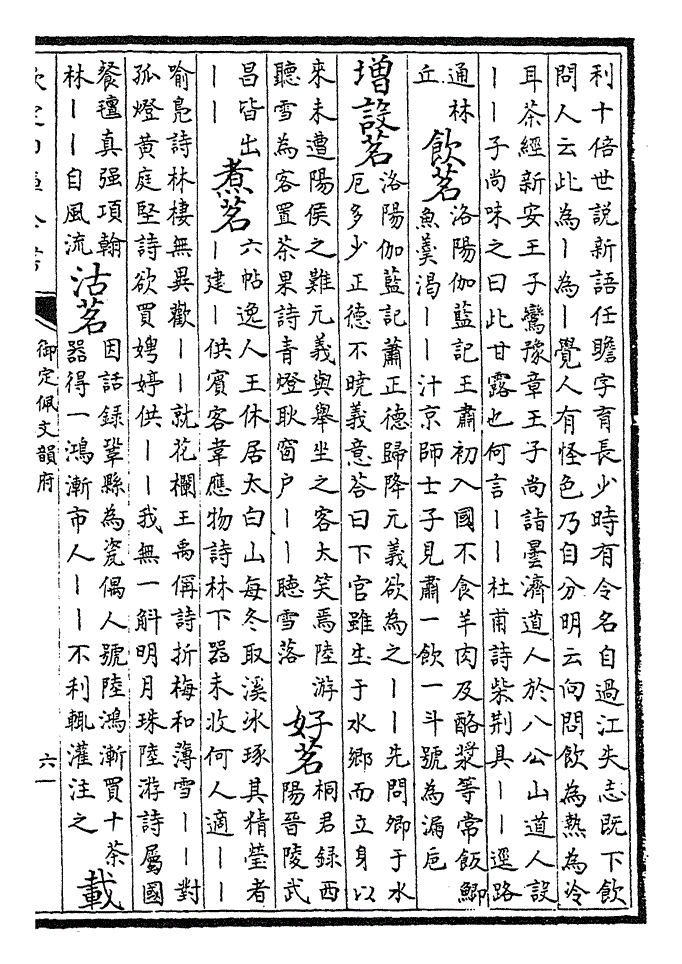 利十倍世說新語任瞻字育長少時有令名自過江失志既下飲
問人云此為丨為丨覺人有怪色乃自分明云向問飲為熱為冷
耳茶經新安王子鸞豫章王子尚詣曇濟道人於八公山道人設
丨丨子尚味之曰此甘露也何言丨丨杜甫詩柴荆具丨丨逕路
通林
丘
飲茗
洛陽伽藍記王肅初入國不食羊肉及酪漿等常飯鯽
魚羹渴丨丨汁京師士子見肅一飲一斗號為漏巵
増設茗
洛陽伽藍記蕭正德歸降元義欲為之丨丨先問卿于水
厄多少正德不曉義意答曰下官雖生于水鄉而立身以
來未遭陽侯之難元義與舉坐之客大笑焉陸游
聽雪為客置茶果詩青燈耿窗户丨丨聽雪落
好茗
桐君録西
陽晉陵武
昌皆出
丨丨
煮茗
六帖逸人王休居太白山每冬取溪氷琢其精瑩者
丨建丨供賓客韋應物詩林下器未收何人適丨丨
喻鳧詩林棲無異歡丨丨就花欄王禹偁詩折梅和薄雪丨丨對
孤燈黄庭堅詩欲買娉婷供丨丨我無一斛明月珠陸游詩屬國
餐氊真强項翰
林丨丨自風流
沽茗
因話録鞏縣為瓷偶人號陸鴻漸買十茶
器得一鴻漸市人丨丨不利輙灌注之
載
御定佩文韻府
六一